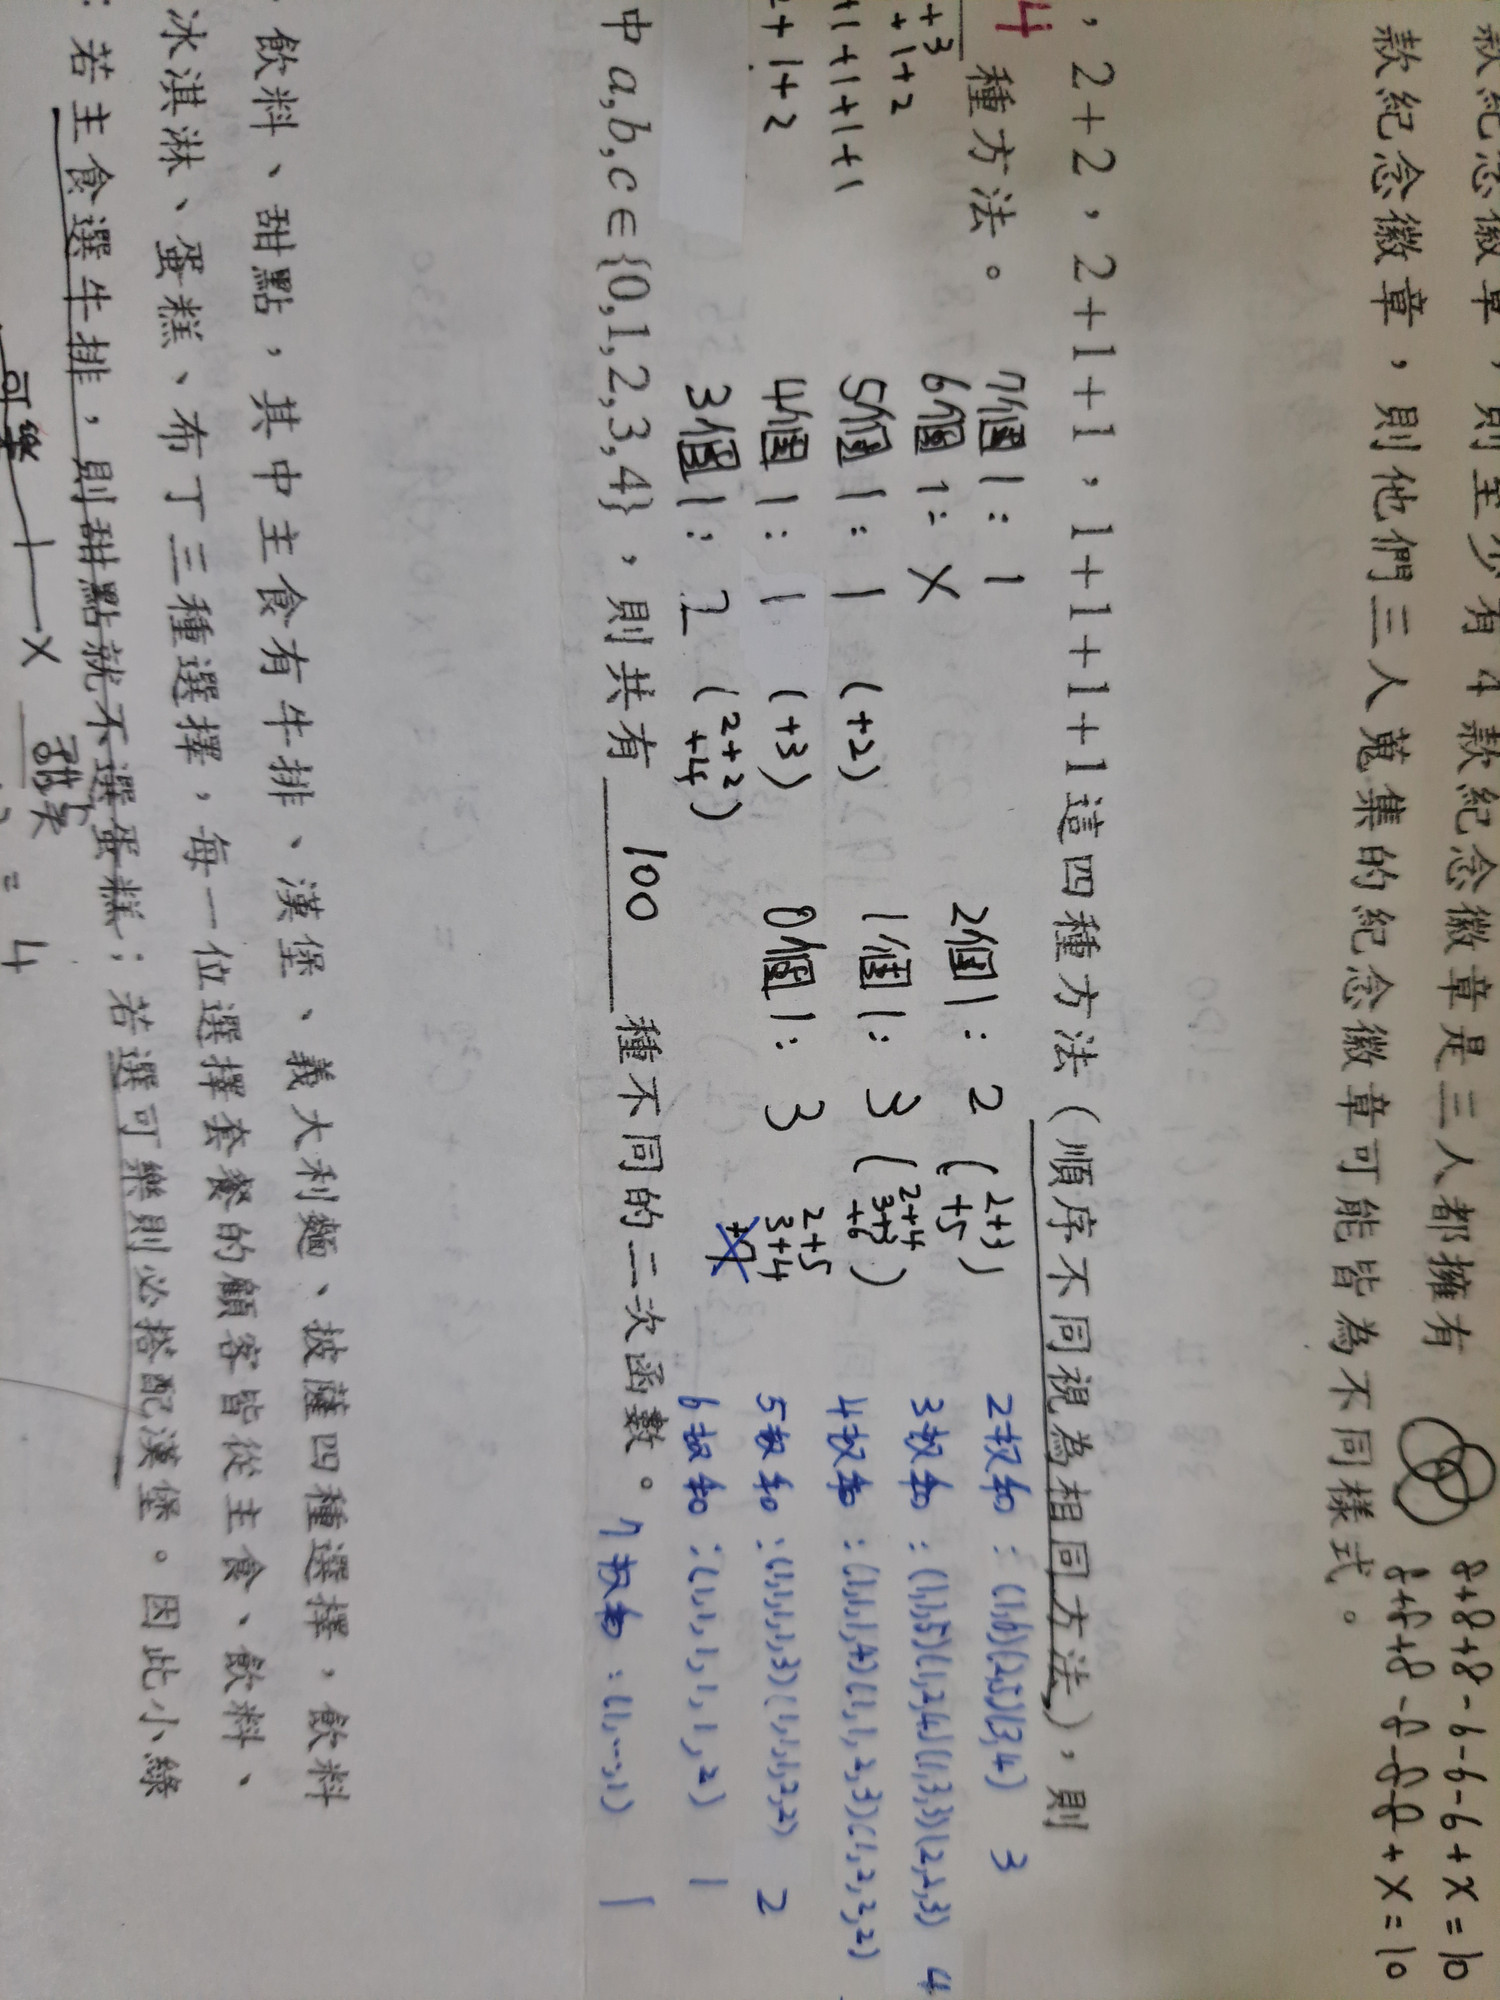 款紀念徽章，則至少有 4 款紀念徽章是三人都擁有
款紀念徽章，則他們三人蒐集的紀念徽章可能皆為不同樣式。
8+8+8-6-6-6+x=10
8+8+8-8-8-8+x=10
，2+2，2+1+1，1+1+1+1這四種方法（順序不同視為相同方法），則
4 種方法。
+3
+1+2
+1+1+1+1
2+1+2
7個1: 1
6個1: X
5個1: 1 (+2)
4個1: 1 (+3)
3個1: 2 (2+2
+4)
2個1: 2 (2+3
+5)
1個1: 3 (2+4
3+3
+6)
0個1: 3 2+5
3+4
2數和：(1,6)(2,5)(3,4) 3
3數和：(1,1,5)(1,2,4)(1,3,3)(2,2,3) 4
4數和：(1,1,1,4)(1,1,2,3)(1,2,2,2)
5數和：(1,1,1,1,3)(1,1,1,2,2) 2
6數和：(1,1,1,1,1,2) 1
7數和：(1,…,1) 1
中 a,b,c∈{0,1,2,3,4}，則共有 100 種不同的二次函數。
飲料、甜點，其中主食有牛排、漢堡、義大利麵、披薩四種選擇，飲料
冰淇淋、蛋糕、布丁三種選擇，每一位選擇套餐的顧客皆從主食、飲料、
：若主食選牛排，則甜點就不選蛋糕；若選可樂則必搭配漢堡。因此小綠
可樂 X 甜 = 4